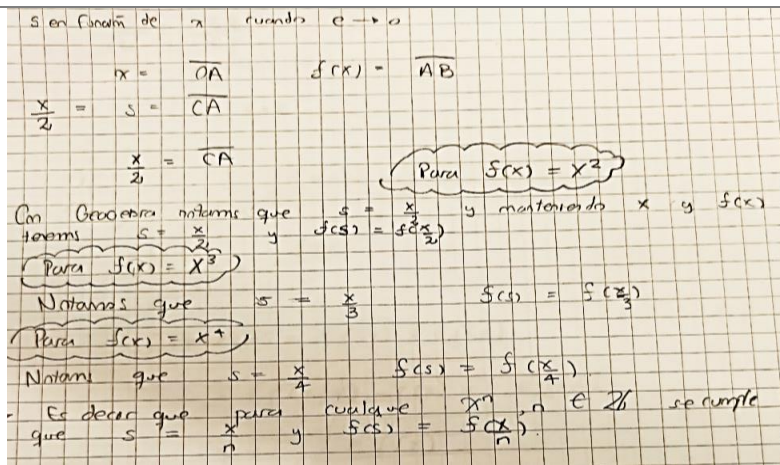 s en función de x cuando e → 0
x = OA f(x) = AB
x/2 = s = CA
x/2 = CA
Para f(x) = x²
Con Geogebra notamos que s = x/2 y manteniendo x y f(x)
tenems s = x/2 y f(s) = f(x/2)
Para f(x) = x³
Notamos que s = x/3 f(s) = f(x/3)
Para f(x) = x⁴
Notams que s = x/4 f(s) = f(x/4)
- Es decir que para cualque xⁿ, n ∈ ℤ se cumple
que s = x/n y f(s) = f(x/n).